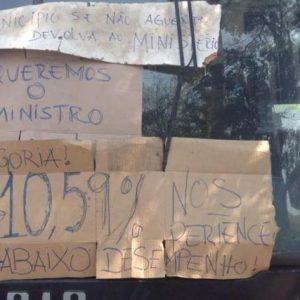 NICÍPIO SE NÃO AGUENTA
DEVOLVA AO MINISTÉRIO
QUEREMOS
O
MINISTRO
GORIA!
10,59% NOS
PERTENCE
ABAIXO DESEMPENHO!